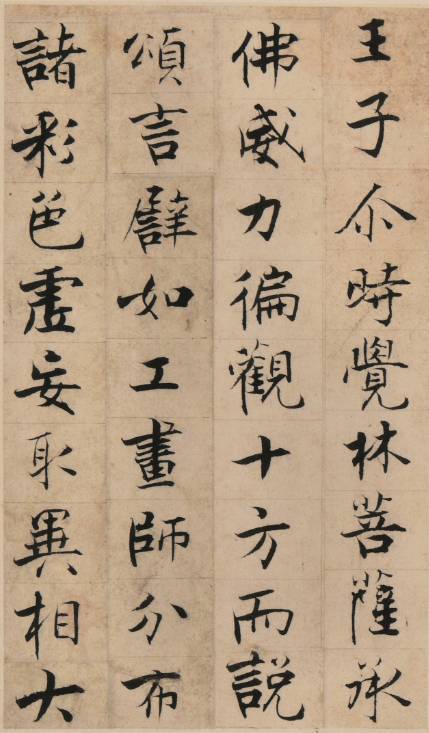 王子尒時覺林菩薩承
佛威力徧觀十方而説
頌言譬如工畫師分布
諸彩色虛妄取異相大